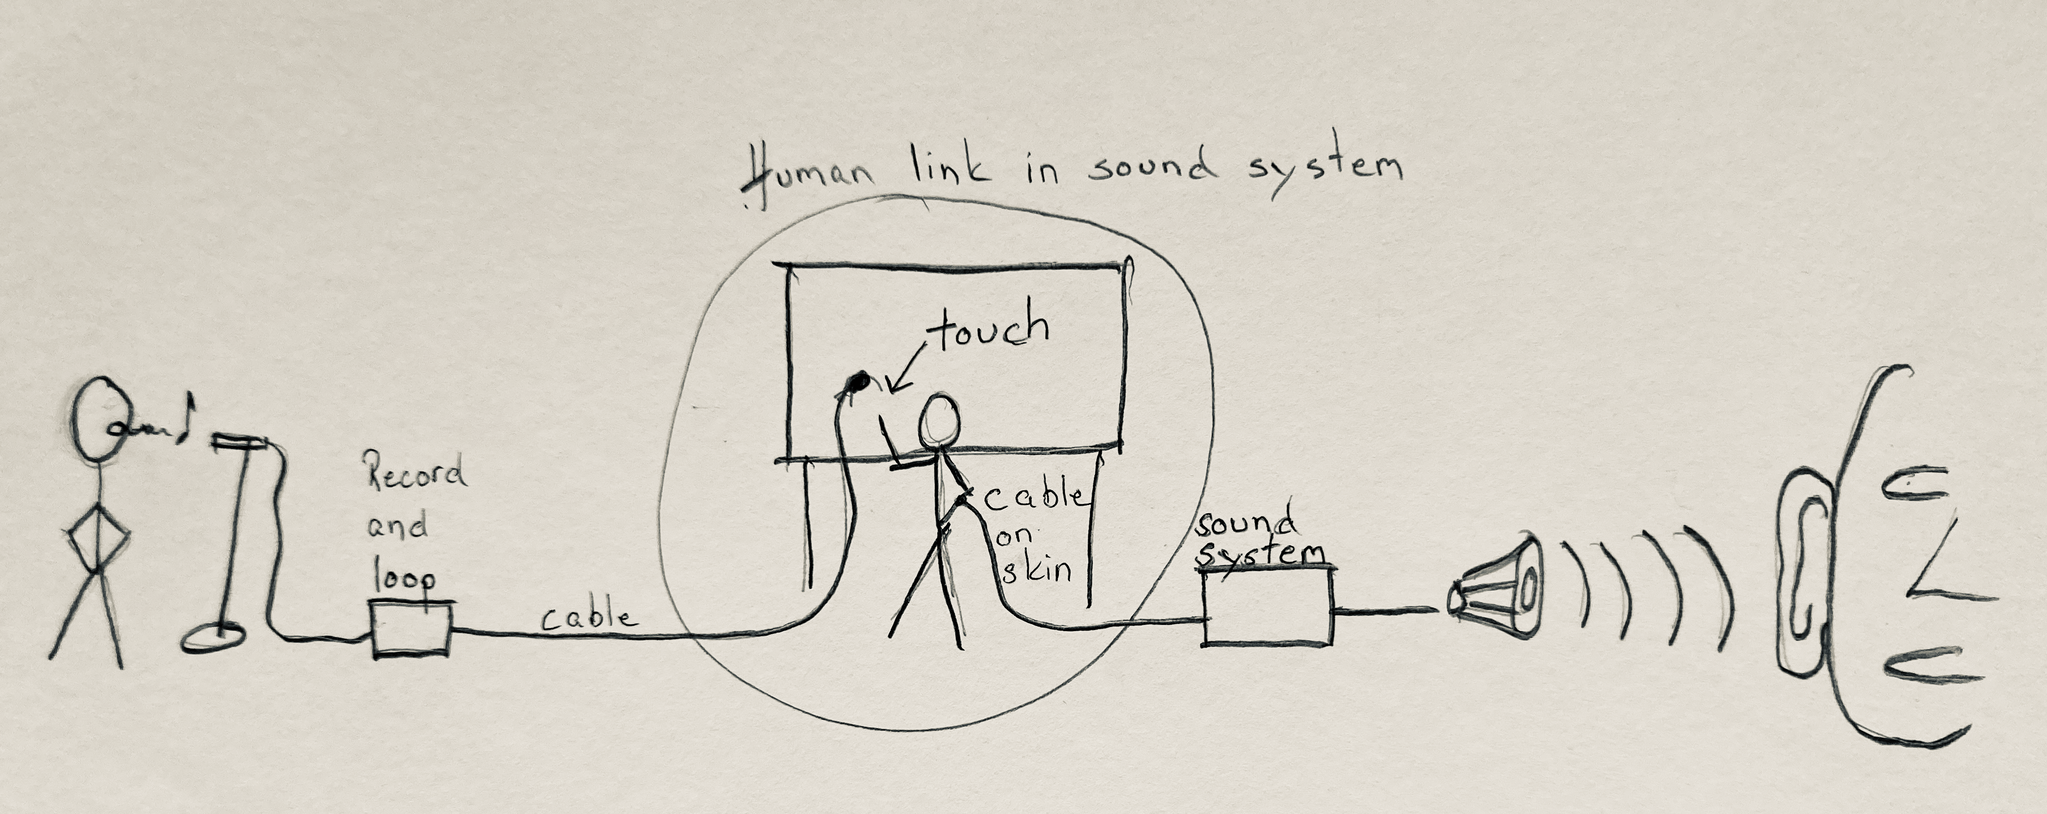 Human link in sound system
touch
Record
and
loop
cable
cable
on
skin
sound
system